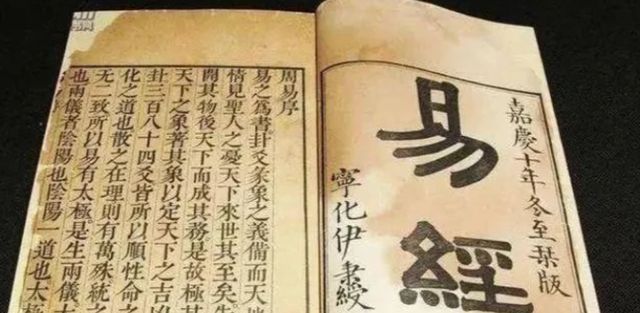 嘉慶十年冬至栞版
易經
寧化伊秉綬
周易序
易之爲書卦爻彖象之義備而天
情見聖人之憂天下來世其至矣
開其物後天下而成其務是故極其
天下之象著其象以定天下之吉凶
卦三百八十四爻皆所以順性命
化之道也散之在理則有萬殊統之
无二致所以易有太極是生兩儀
也兩儀者陰陽也陰陽一道也太極